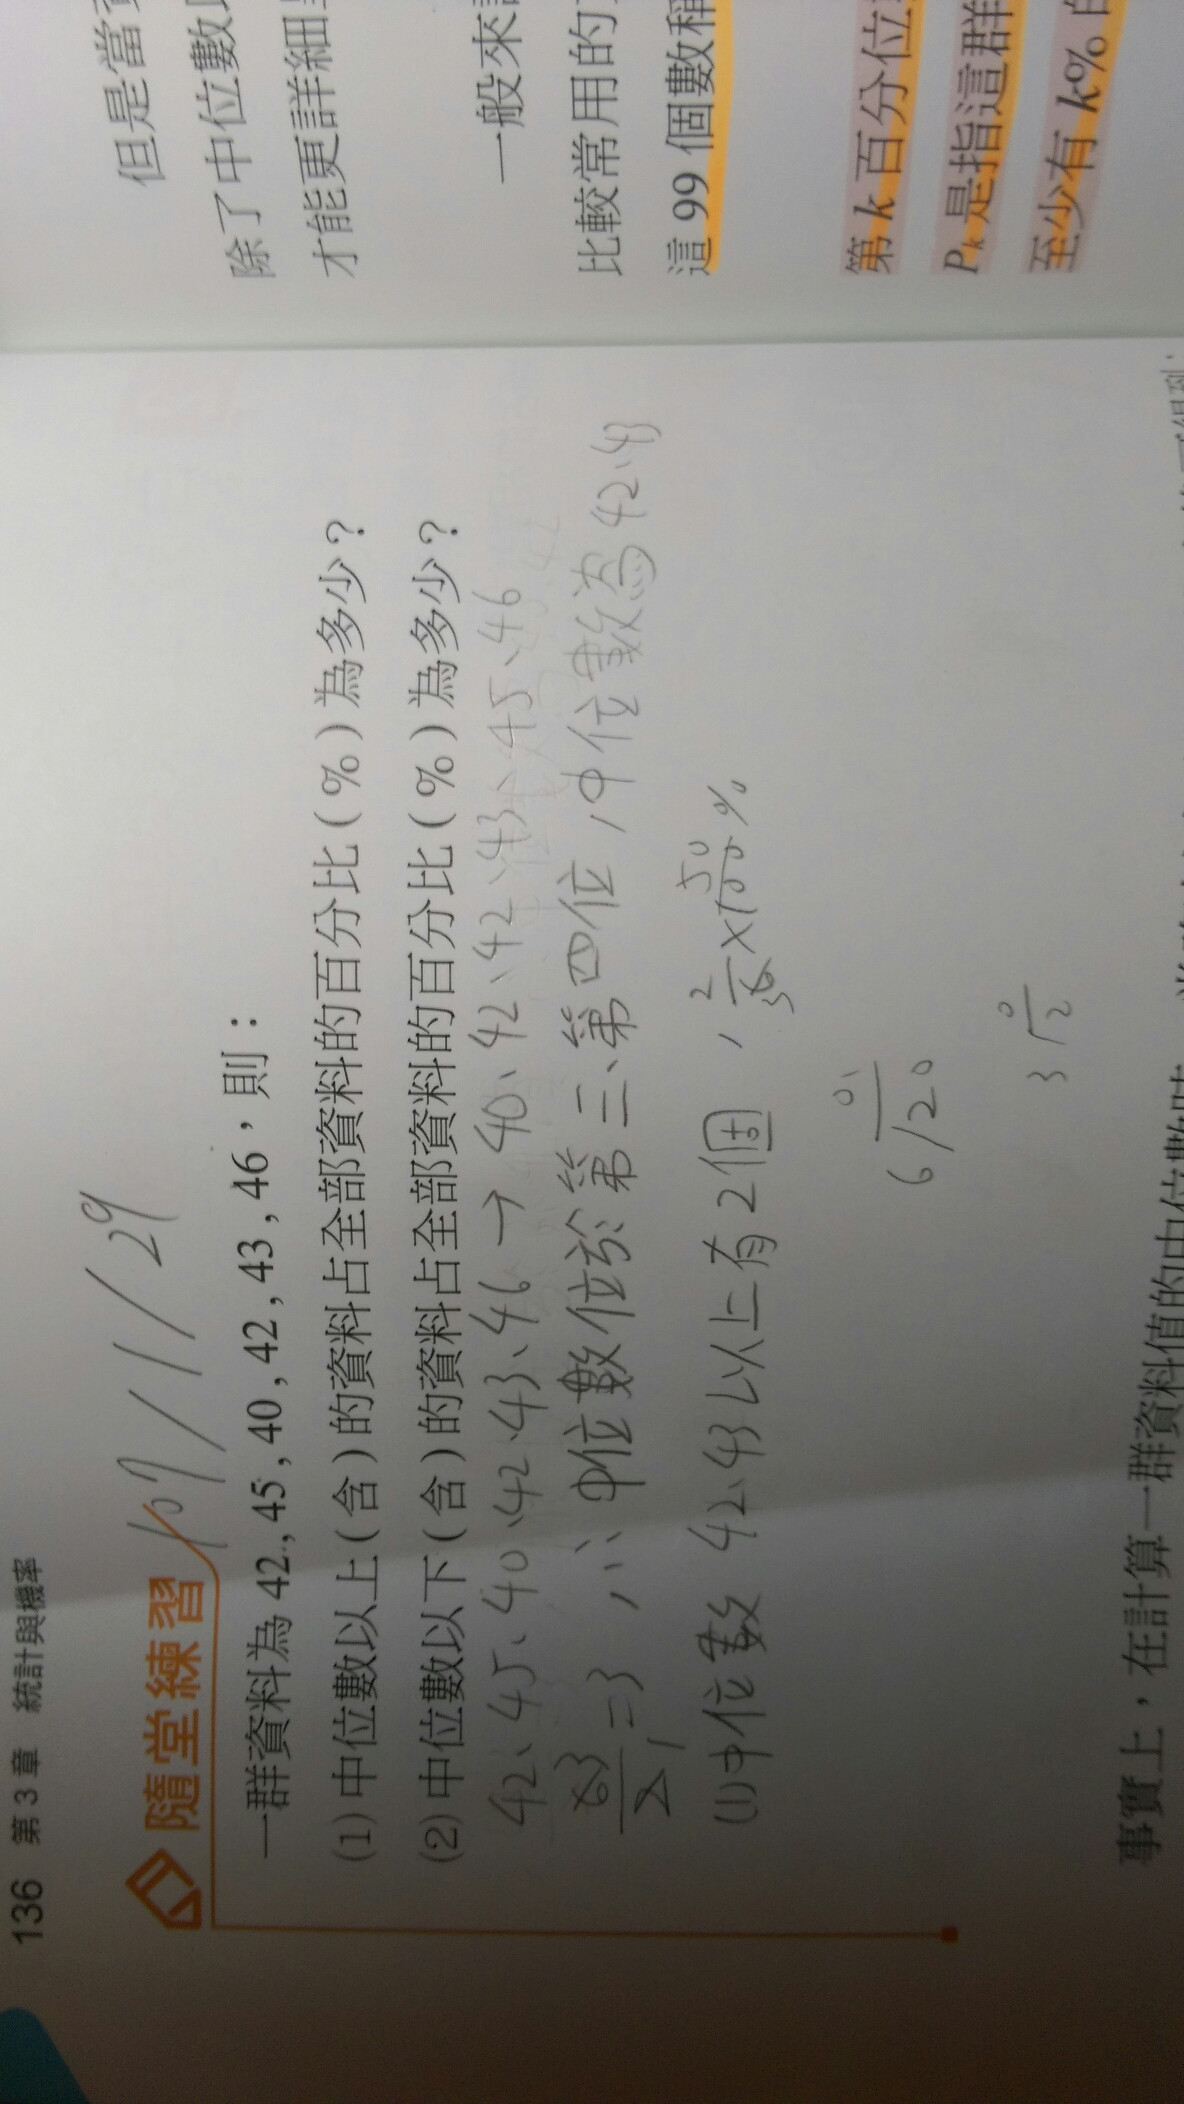 136 第 3 章 統計與機率
隨堂練習
107/11/29
一群資料為 42 , 45 , 40 , 42 , 43 , 46 , 則：
(1) 中位數以上 ( 含 ) 的資料占全部資料的百分比 ( % ) 為多少？
(2) 中位數以下 ( 含 ) 的資料占全部資料的百分比 ( % ) 為多少？
42、45、40、42、43、46 → 40、42、42、43、45、46
6/2 = 3 , ∴中位數位於第三、第四位 , 中位數為 42、43
3
1
(1)中位數 42、43以上有2個 , 2/6 × 100 %
3
50
0.
6/20
0
3√2
事實上，在計算一群資料值的中位數時
但是當
除了中位數以
才能更詳細
一般來
比較常用的
這 99 個數稱
第 k 百分位
Pk 是指這群
至少有 k% 的